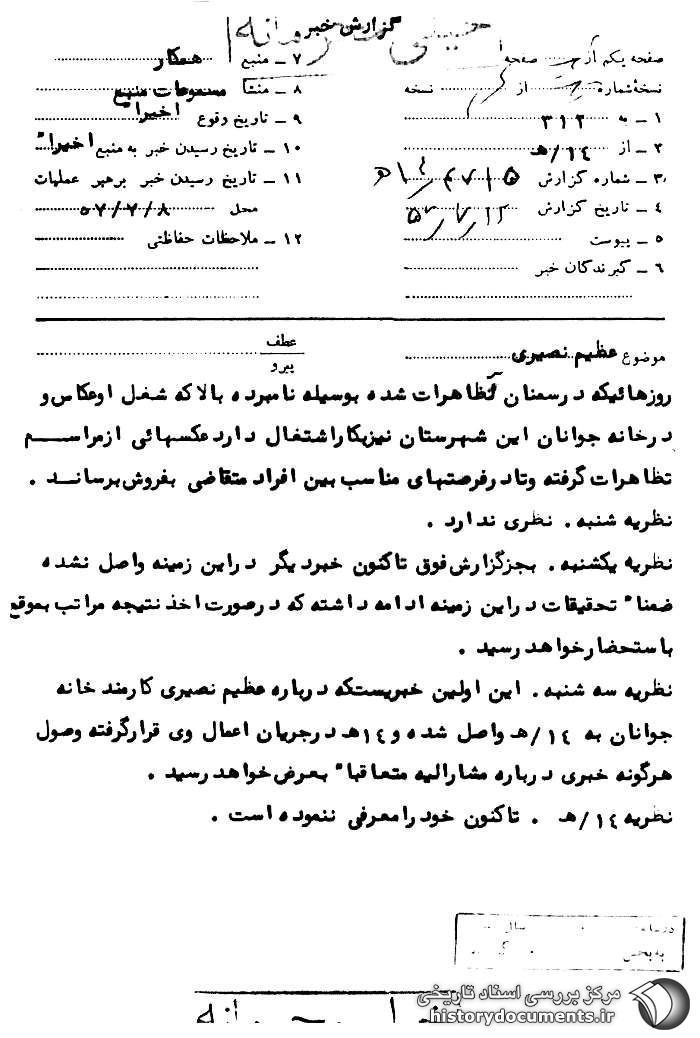 گزارش خبر
خیلی محرمانه
صفحه یکم از صفحه
نسخهٔ شماره از نسخه
۱ ـ به ۳۱۲
۲ ـ از ۱۴/هـ
۳ ـ شماره گزارش
۴ ـ تاریخ گزارش ۵۷/۷/۱۲
۵ ـ پیوست
۶ ـ گیرندگان خبر
۷ ـ منبع همکار
۸ ـ منشأ مسموعات منبع
۹ ـ تاریخ وقوع اخیراً
۱۰ ـ تاریخ رسیدن خبر به منبع اخیراً
۱۱ ـ تاریخ رسیدن خبر برهبر عملیات
محل ۵۷/۷/۸
۱۲ ـ ملاحظات حفاظتی
موضوع عظیم نصیری
عطف
پیرو
روزهائیکه درسمنان تظاهرات شده بوسیله نامبرده بالاکه شغل اوعکاس و
درخانه جوانان این شهرستان نیزبکاراشتغال دارد عکسهائی ازمراسم
تظاهرات گرفته وتادرفرصتهای مناسب بین افراد متقاضی بفروش برساند .
نظریه شنبه . نظری ندارد .
نظریه یکشنبه . بجزگزارش فوق تاکنون خبردیگر دراین زمینه واصل نشده
ضمناً تحقیقات دراین زمینه ادامه داشته که درصورت اخذ نتیجه مراتب بموقع
باستحضارخواهد رسید .
نظریه سه شنبه . این اولین خبریستکه درباره عظیم نصیری کارمند خانه
جوانان به ۱۴/هـ واصل شده و ۱۴هـ درجریان اعمال وی قرارگرفته وصول
هرگونه خبری درباره مشارالیه متعاقباً بعرض خواهد رسید .
نظریه ۱۴/هـ . تاکنون خود رامعرفی ننموده است .
مرکز بررسی اسناد تاریخی
historydocuments.ir